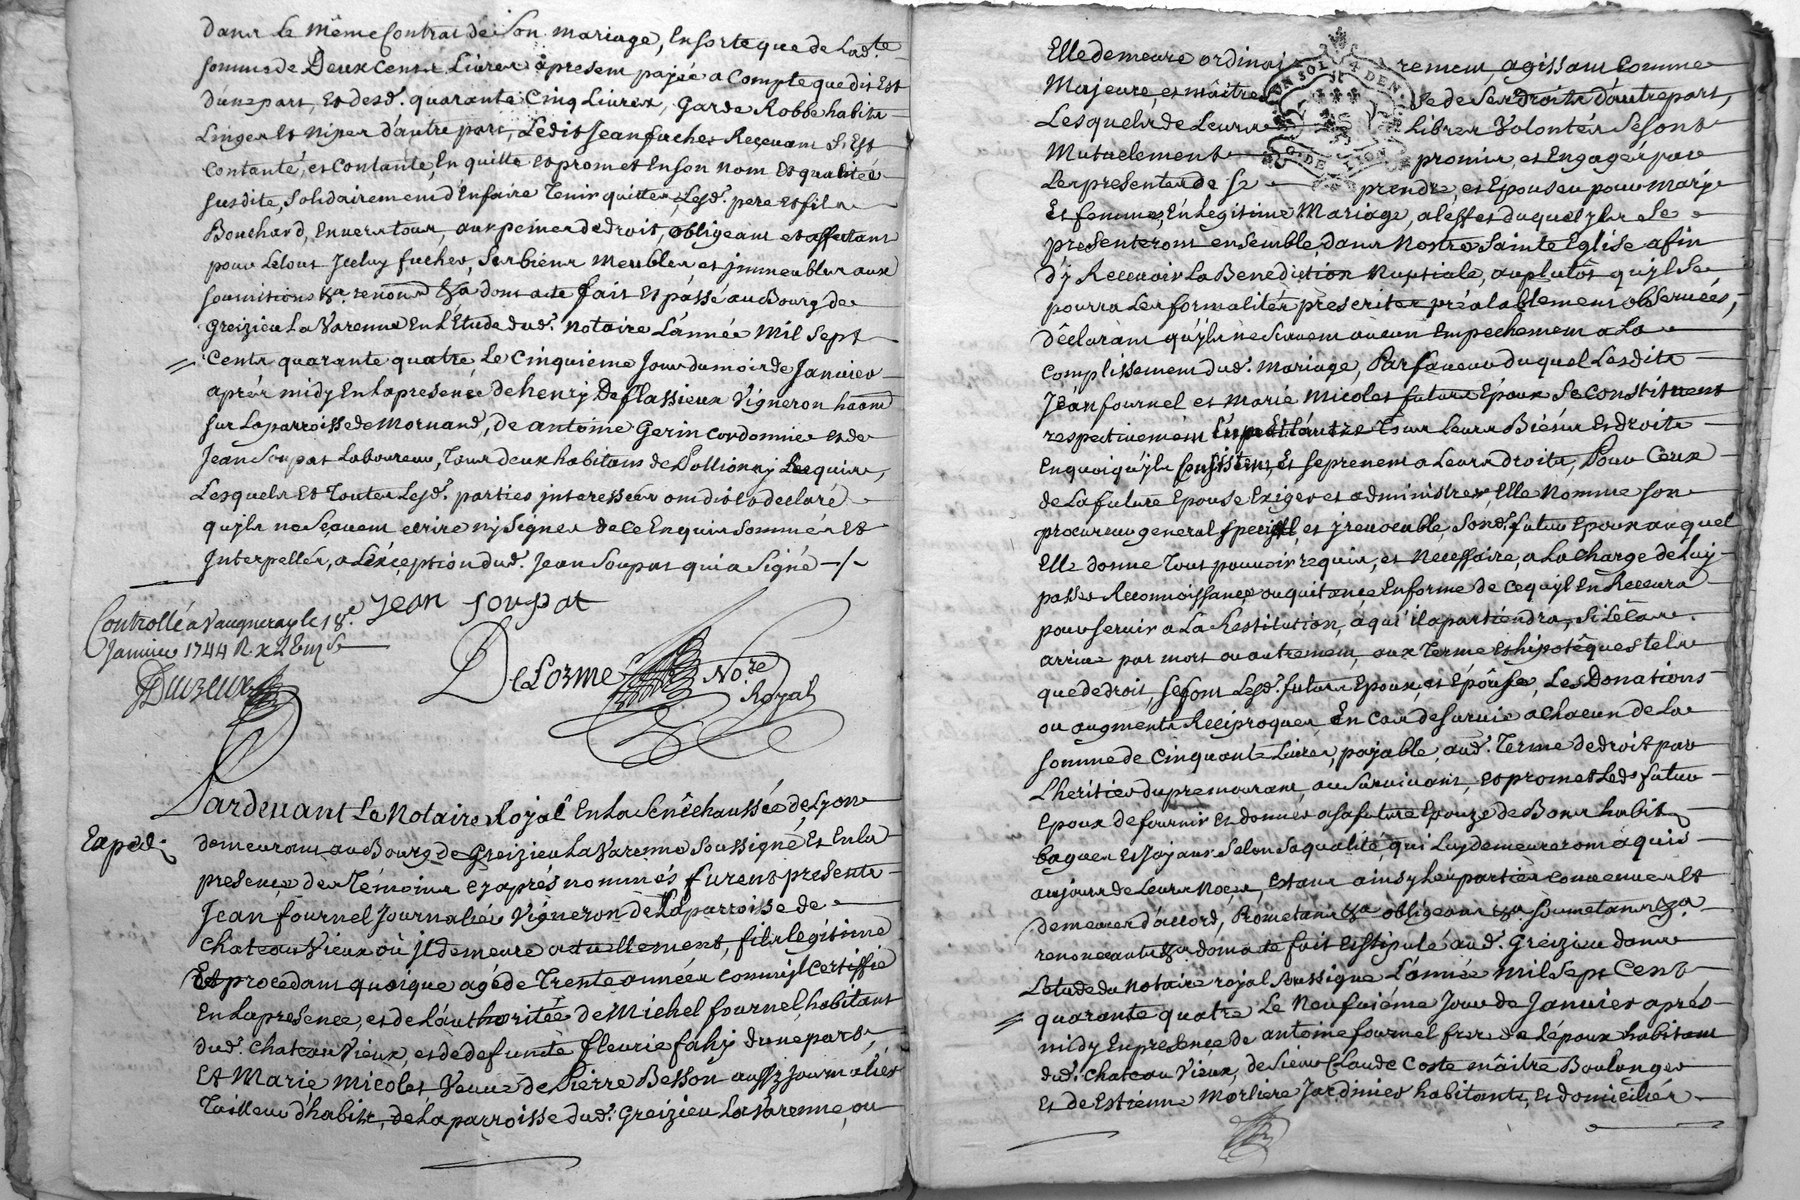 dans le même Contrat de son mariage, En sorte que de Lad.te
somme de Deux Cents Livres apresent pajée a Compte que dit Est
dune part, Et desd. quarante Cinq Livres, Garde Robbe habits
Linges Et Nipes d'autre part, Ledit Jean fucher Recevant S'Est
Contanté, et Contante, En quitte et promet En son nom Et qualité
susdite, Solidairement d'En faire Tenir quittes, Lesd. pere et fils
Bouchard, Envers tous, aux peines de droit, obligeant et affectant
pour Le tout Jceluy fucher, Ses biens meubles et jmmeubles aux
soumitions &a. renonc &a dont acte fait Et passé au Bourg de
Greizieu La Varenne En L'Etude dud. Notaire L'année Mil Sept
Cents quarante quatre Le Cinquieme Jour du mois de Janvier
après midy En la presence de henry De flassieux Vigneron haant
sur La parroisse de Mornand, de antoine Gerin Cordonnier et de
Jean Soupat Laboureur, Tous deux habitans de Pollionnay Requis,
Lesquels Et Toutes Lesd. parties jnteressées ont dit et declaré
qu'jls ne sçavent écrire nj signer de ce Enquis Sommés Et
Interpellés, a L'exception dud. Jean Soupat qui a Signé -/-
Jean Soupat
Controllé a Vaugneray le 18.e
Janvier 1744 R x
DeLorme No.re
Royal
Pardevant Le Notaire Royal En La Sénéchaussée de Lyon
Exped.
demeurant au Bourg de Greizieu La Varenne Soussigné Et En la
presence des Témoins Cy après nommés furent presents
Jean fournel Journalier Vigneron de La parroisse de
Chateau Vieux où jl demeure actuellement, fils légitime
Et procedant quoique agé de Trente années Comm'jl Certiffie
En La presence, et de L'authoritée de Michel fournel habitant
dud. Chateau Vieux, et de defunte fleurie fahy d'une part,
Et Marie Micolet Veuve de Pierre Besson aussy journalier
Tailleur d'habits, de La parroisse dud. Greizieu La Varenne, ou
UN SOL 4 DEN
G. DE LION
Elle demeure ordinairement, agissant Comme
Majeure, et maitresse de Ses Droits d'autre part,
Lesquels de Leurs Libres Volontés Se sont
Mutuelement promis, et Engagés par
Les presentes de Se prendre et Epouser pour Mary
Et femme, En Legitime Mariage, a l'effet duquel jls Se
presenteront ensemble dans Nostre Sainte Eglise afin
d'y Recevoir La Benediction Nuptiale, au plutôt qu'jl Se
pourra Les formalités prescrites préalablement observées,
Déclarant qu'jls ne Scavent aucun Empechement a La
Complissement dud. Mariage, Par faveur duquel Lesdits
Jean fournel et Marie Micolet futurs Epoux Se Constituent
respectivement L'un et L'autre Tous Leurs Biens Et droits
En quoi qu'jls Consistent, Et se prenent a Leurs droits, Pour Ceux
de La future Epouse Exiger et administrer Elle Nomme son
procureur general special et jrevocable, Sond. futur Epoux auquel
Elle donne Tout pouvoir requis, et Necessaire, a La Charge de Luy
passer Reconnoissance ou quitance En forme de ce qu'jl En Recevra
pour servir a La Restitution, a qui il apartiendra, Si Le cas
arrive par mort ou autrement, aux Termes Et hipotêques tels
que de droit, Se font Lesd. futurs Epoux, et Epouse, Les Donations
ou augments Reciproques En cas de survie a chacun de La
somme de Cinquante Livres, pajable aud. Terme de droit par
L'heritier du premourant, au Survivant, et promet Led. futur
Epoux de fournir Et donner a Sa future Epouze de Bons habits
bagues Et joyaux Selon Sa qualité, qui Luy demeureront aquis
au jour de Leurs Noces, Estant ainsy Les parties Convenues Et
demeurées d'accord, Prometant &a obligeant &a soumetant &a.
renonceant &a dont acte fait Et stipulé aud. Greizieu dans
L'etude du Notaire royal Soussigne L'année Mil Sept Cent
quarante quatre Le Neufviême Jour de Janvier après
midy En presence de antoine fournel frere de L'époux habitant
dud. Chateau Vieux, de Sieur Claude Coste maître Boulanger
et de Estienne Morliere Jardinier habitants, et domiciliés